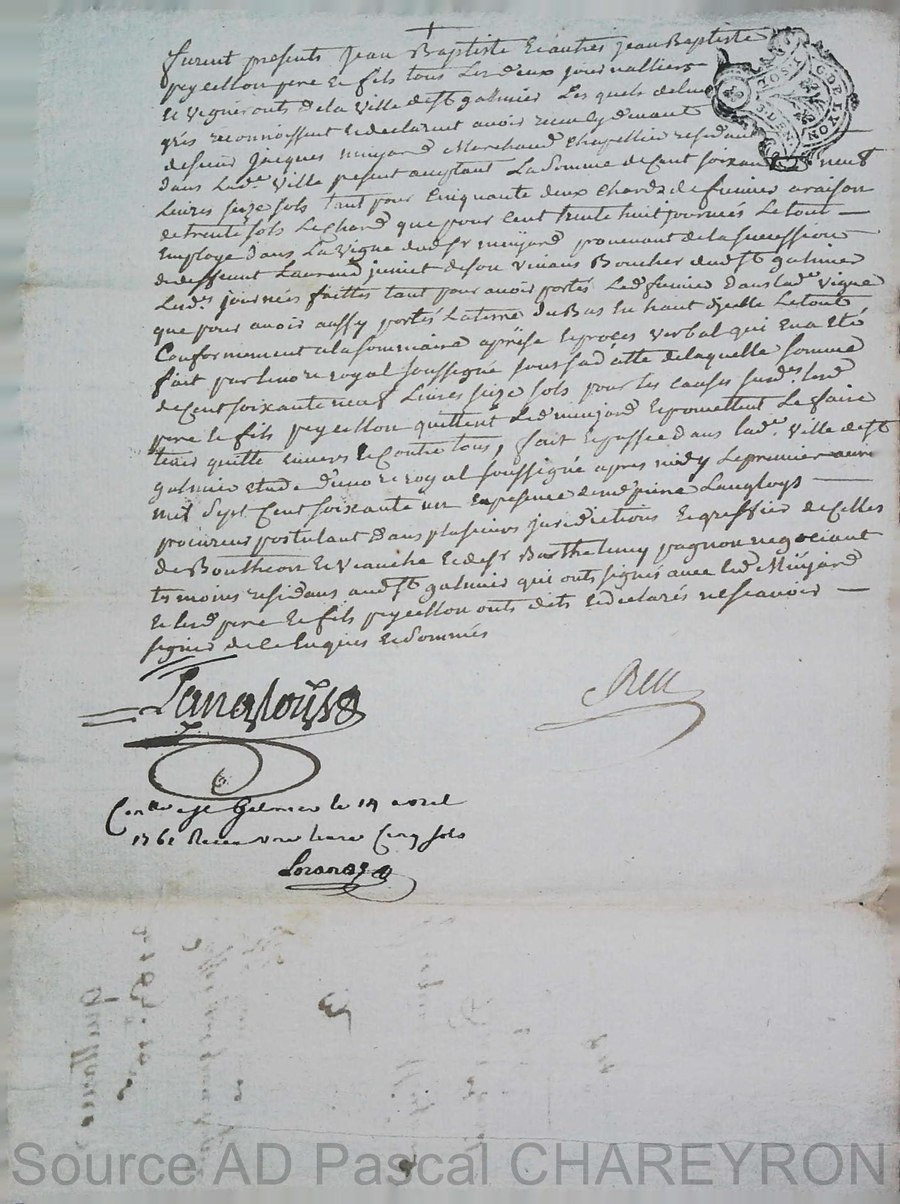 furent presents Jean Baptiste et autres jean Baptiste
peycellon pere et fils tous les deux journalliers
et vignerons de la Ville de st galmier Les quels de leur
grés reconnoissent et declarent avoir receu cy devant
de sieur Jacques muijard Marchand Chapellier residant
dans Lade. Ville present acceptant La Somme de Cent soixante neuf
Livres seize sols tant pour Cinquante deux Chards de fumier araison
de trente sols Le Chard que pour Cent trente huit journées Le tout
Employe dans La Vigne dud sr muijard provenant de la succession
de deffeunt Laurand de son vivans Boucher dud st galmier
Lesds. journées faittes tant pour avoir portés Led fumier dans lade vigne
que pour avoir aussy portés La terre du Bas en haut dycelle Le tout
Conformement a la sommaire aprise et proces verbal qui en a eté
fait par le nore royal soussigné sous sa datte de laquelle somme
de Cent soixante neuf Livres seize sols pour les causes susds. lesd
pere et fils peycellon quittent Led muijard et promettent Le faire
tenir quitte envers et contre tous, fait et passé dans lade. Ville de st
galmier etude du nore royal soussigné apres midy Le premier avril
mil sept Cent soixante un En presence de me pierre Langloys
procureur postulant dans plusieurs juridictions et greffier de Celles
de Boutheon et Veauche et de sr Barthelemy pagnon negociant
temoins residans aud st galmier qui onts signés avec led Muijard
et lesd pere et fils peycellon onts dits et declarés ne scavoir
signer de ce Enquis et sommés
Langloys
Reu
Conlle a st Galmier le 14 avril
1761 Receu treize sols
DE LYON
Source AD Pascal CHAREYRON